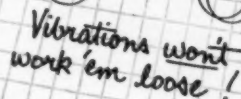 Vibrations won't
work 'em loose!